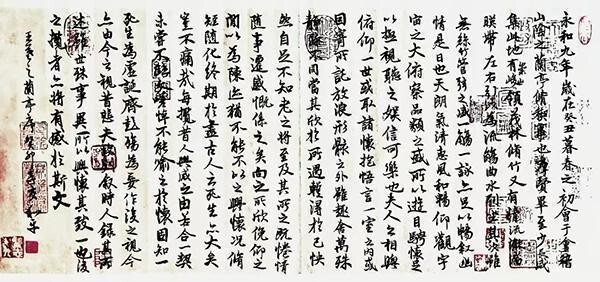 永和九年歲在癸丑暮春之初會于會稽
山陰之蘭亭脩稧事也群賢畢至少長咸
集此地有崇山峻領茂林脩竹又有清流激湍
暎帶左右引以為流觴曲水列坐其次雖
無絲竹管弦之盛一觴一詠亦足以暢敘幽
情是日也天朗氣清惠風和暢仰觀宇
宙之大俯察品類之盛所以遊目騁懷足
以極視聽之娛信可樂也夫人之相與
俯仰一世或取諸懷抱悟言一室之內或
因寄所託放浪形骸之外雖趣舍萬殊
靜躁不同當其欣於所遇暫得於己快
然自足不知老之將至及其所之既惓情
隨事遷感慨係之矣向之所欣俛仰之
間以為陳迹猶不能不以之興懷況脩
短隨化終期於盡古人云死生亦大矣
豈不痛哉每攬昔人興感之由若合一契
未嘗不臨文嗟悼不能喻之於懷固知一
死生為虛誕齊彭殤為妄作後之視今
亦由今之視昔悲夫故列敘時人錄其所
述雖世殊事異所以興懷其致一也後
之攬者亦將有感於斯文
王羲之蘭亭序癸卯